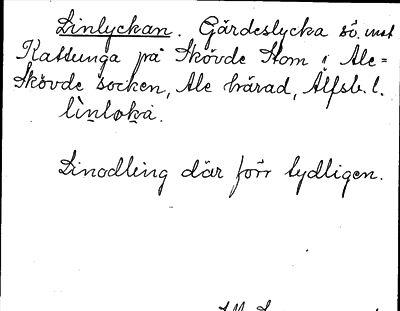 Linlyckan. Gärdeslycka sö. mot
Kattunga på Skövde Stom i Ale=
Skövde socken, Ale härad, Älfsb. l.
lìnloka.
Linodling där förr tydligen.